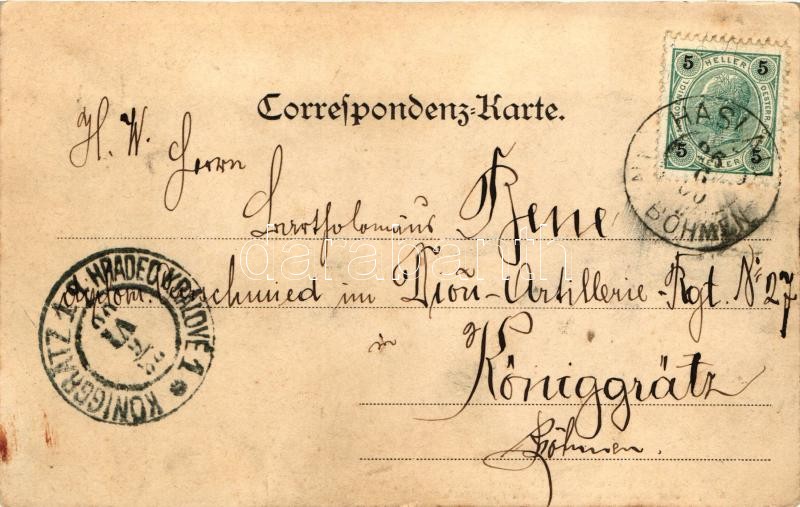 Correspondenz-Karte.
H. W. Herrn
Bartholomäus Bene
schmied im Dion-Artillerie-Rgt. Nr 27
in
Königgrätz
Böhmen.
5 HELLER 5
5 HELLER 5
HASL
BÖHMEN
KÖNIGGRÄTZ 1 * HRADEC KRÁLOVÉ 1
darabanth